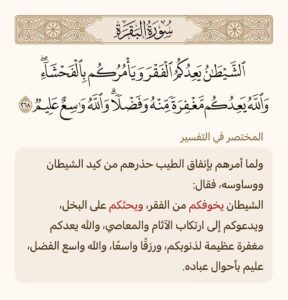 سُورَةُ البَقَرَةِ
الشَّيْطَانُ يَعِدُكُمُ الْفَقْرَ وَيَأْمُرُكُم بِالْفَحْشَاءِ ۖ
وَاللَّهُ يَعِدُكُم مَّغْفِرَةً مِّنْهُ وَفَضْلًا ۗ وَاللَّهُ وَاسِعٌ عَلِيمٌ ٢٦٨
المختصر في التفسير
ولما أمرهم بإنفاق الطيب حذرهم من كيد الشيطان
ووساوسه، فقال:
الشيطان يخوفكم من الفقر، ويحثكم على البخل،
ويدعوكم إلى ارتكاب الآثام والمعاصي، والله يعدكم
مغفرة عظيمة لذنوبكم، ورزقًا واسعًا، والله واسع الفضل،
عليم بأحوال عباده.